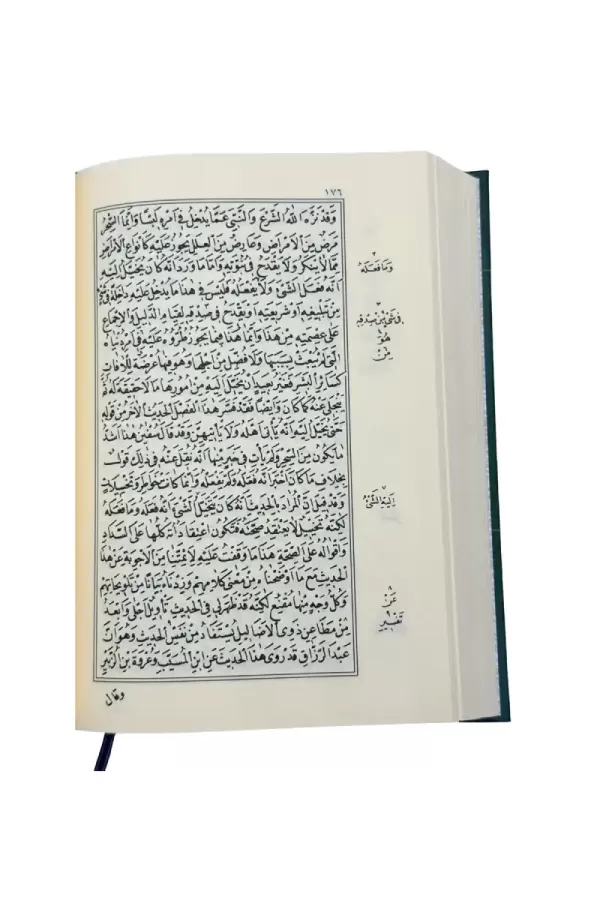 ١٧٦
وَقَدْ نَزَّهَ اللهُ الشَّرْعَ وَالنَّبِيَّ عَمَّا يُدْخِلُ فِي أَمْرِهِ لَبْسًا وَإِنَّمَا السِّحْرُ
مَرَضٌ مِنَ الْأَمْرَاضِ وَعَارِضٌ مِنَ الْعِلَلِ يَجُوزُ عَلَيْهِ كَأَنْوَاعِ الْأَمْرَاضِ
مِمَّا لَا يُنْكَرُ وَلَا يَقْدَحُ فِي نُبُوَّتِهِ وَأَمَّا مَا وَرَدَ أَنَّهُ كَانَ يُخَيَّلُ إِلَيْهِ
أَنَّهُ فَعَلَ الشَّيْءَ وَلَا يَفْعَلُهُ فَلَيْسَ فِي هٰذَا مَا يُدْخِلُ عَلَيْهِ دَاخِلَةً فِي شَيْءٍ
مِنْ تَبْلِيغِهِ أَوْ شَرِيعَتِهِ أَوْ يَقْدَحُ فِي صِدْقِهِ لِقِيَامِ الدَّلِيلِ وَالْإِجْمَاعِ
عَلَى عِصْمَتِهِ مِنْ هٰذَا وَإِنَّمَا هٰذَا فِيمَا يَجُوزُ طُرُوُّهُ عَلَيْهِ فِي أَمْرِ دُنْيَاهُ
الَّتِي لَمْ يُبْعَثْ بِسَبَبِهَا وَلَا فُضِّلَ مِنْ أَجْلِهَا وَهُوَ فِيهَا عُرْضَةٌ لِلْآفَاتِ
كَسَائِرِ الْبَشَرِ فَغَيْرُ بَعِيدٍ أَنْ يُخَيَّلَ إِلَيْهِ مِنْ أُمُورِهَا مَا لَا حَقِيقَةَ لَهُ ثُمَّ
يَنْجَلِي عَنْهُ كَمَا كَانَ وَأَيْضًا فَقَدْ فَسَّرَ هٰذَا الْفَصْلَ الْحَدِيثُ الْآخَرُ مِنْ قَوْلِهِ
حَتَّى يُخَيَّلَ إِلَيْهِ أَنَّهُ يَأْتِي أَهْلَهُ وَلَا يَأْتِيهِنَّ وَقَدْ قَالَ سُفْيٰنُ هٰذَا أَشَدُّ
مَا يَكُونُ مِنَ السِّحْرِ وَلَمْ يَأْتِ فِي خَبَرٍ مِنْهَا أَنَّهُ نُقِلَ عَنْهُ فِي ذٰلِكَ قَوْلٌ
بِخِلَافِ مَا كَانَ أَخْبَرَ أَنَّهُ فَعَلَهُ وَلَمْ يَفْعَلْهُ وَإِنَّمَا كَانَتْ خَوَاطِرَ وَتَخْيِيلَاتٍ
وَقَدْ قِيلَ إِنَّ الْمُرَادَ بِالْحَدِيثِ أَنَّهُ كَانَ يَتَخَيَّلُ الشَّيْءَ أَنَّهُ فَعَلَهُ وَمَا فَعَلَهُ
لٰكِنَّهُ تَخْيِيلٌ لَا يَعْتَقِدُ صِحَّتَهُ فَتَكُونُ اعْتِقَادَاتُهُ كُلُّهَا عَلَى السَّدَادِ
وَأَقْوَالُهُ عَلَى الصِّحَّةِ هٰذَا مَا وَقَفْتُ عَلَيْهِ لِأَئِمَّتِنَا مِنَ الْأَجْوِبَةِ عَنْ هٰذَا
الْحَدِيثِ مَعَ مَا أَوْضَحْنَاهُ مِنْ مَعْنَى كَلَامِهِمْ وَزِدْنَاهُ بَيَانًا مِنْ تَلْوِيحَاتِهِمْ
وَكُلُّ وَجْهٍ مِنْهَا مُقْنِعٌ لٰكِنَّهُ قَدْ ظَهَرَ لِي فِي الْحَدِيثِ تَأْوِيلٌ أَجْلَى وَأَبْعَدُ
مِنْ مَطَاعِنِ ذَوِي الْأَضَالِيلِ يُسْتَفَادُ مِنْ نَفْسِ الْحَدِيثِ وَهُوَ أَنَّ
عَبْدَ الرَّزَّاقِ قَدْ رَوَى هٰذَا الْحَدِيثَ عَنِ ابْنِ الْمُسَيَّبِ وَعُرْوَةَ بْنِ الزُّبَيْرِ
وقال
وَمَا فَعَلَهُ
هُوَ
مِنْ
إِلَيْهِ الشَّيْءُ
عَنْ
تَفْسِيرِ